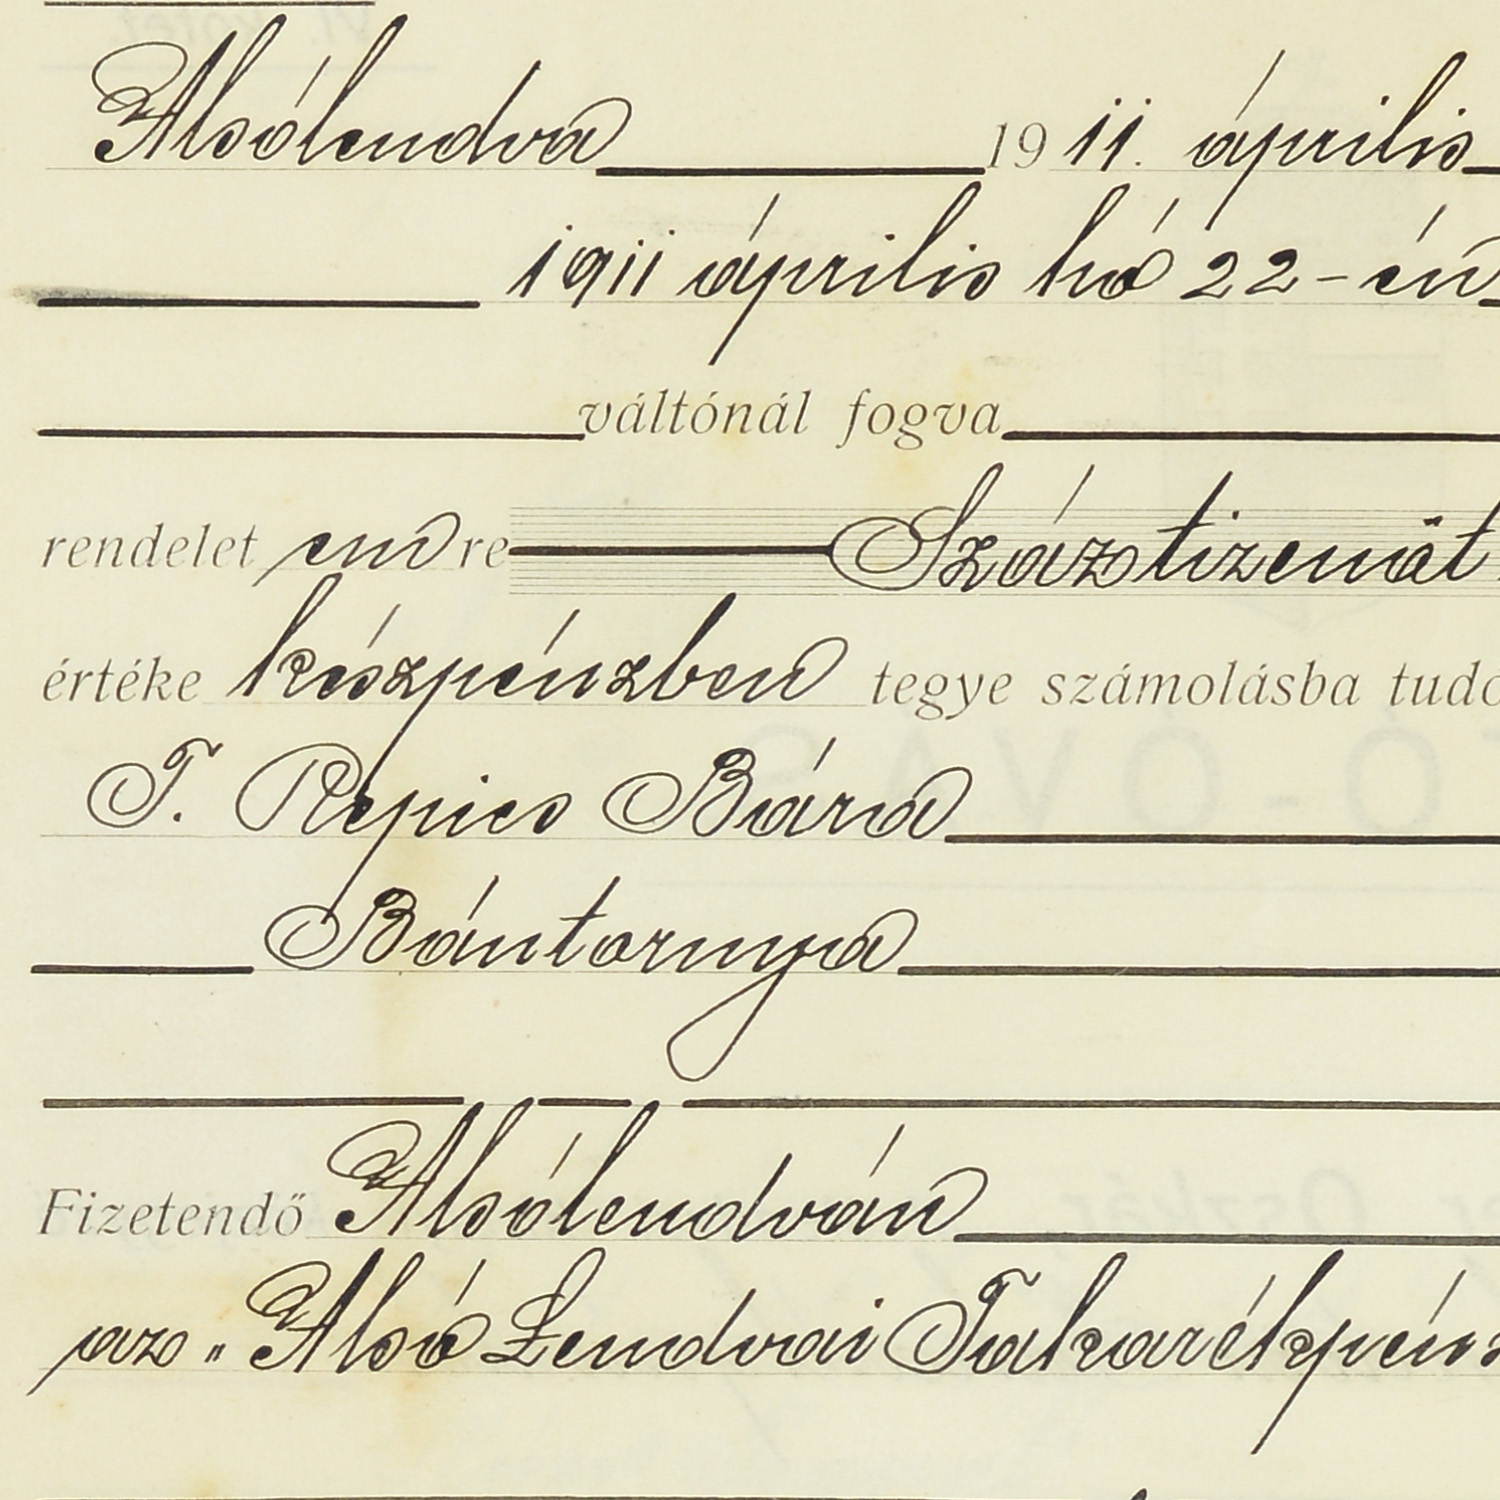 Alsólendva 1911. április
1911 április hó 22-én
váltónál fogva
rendelet en re Száztizenöt
értéke készpénzben tegye számolásba tudo
T. Repics Bára
Bántornya
Fizetendő Alsólendván
az „Alsó Lendvai Takarékpénz